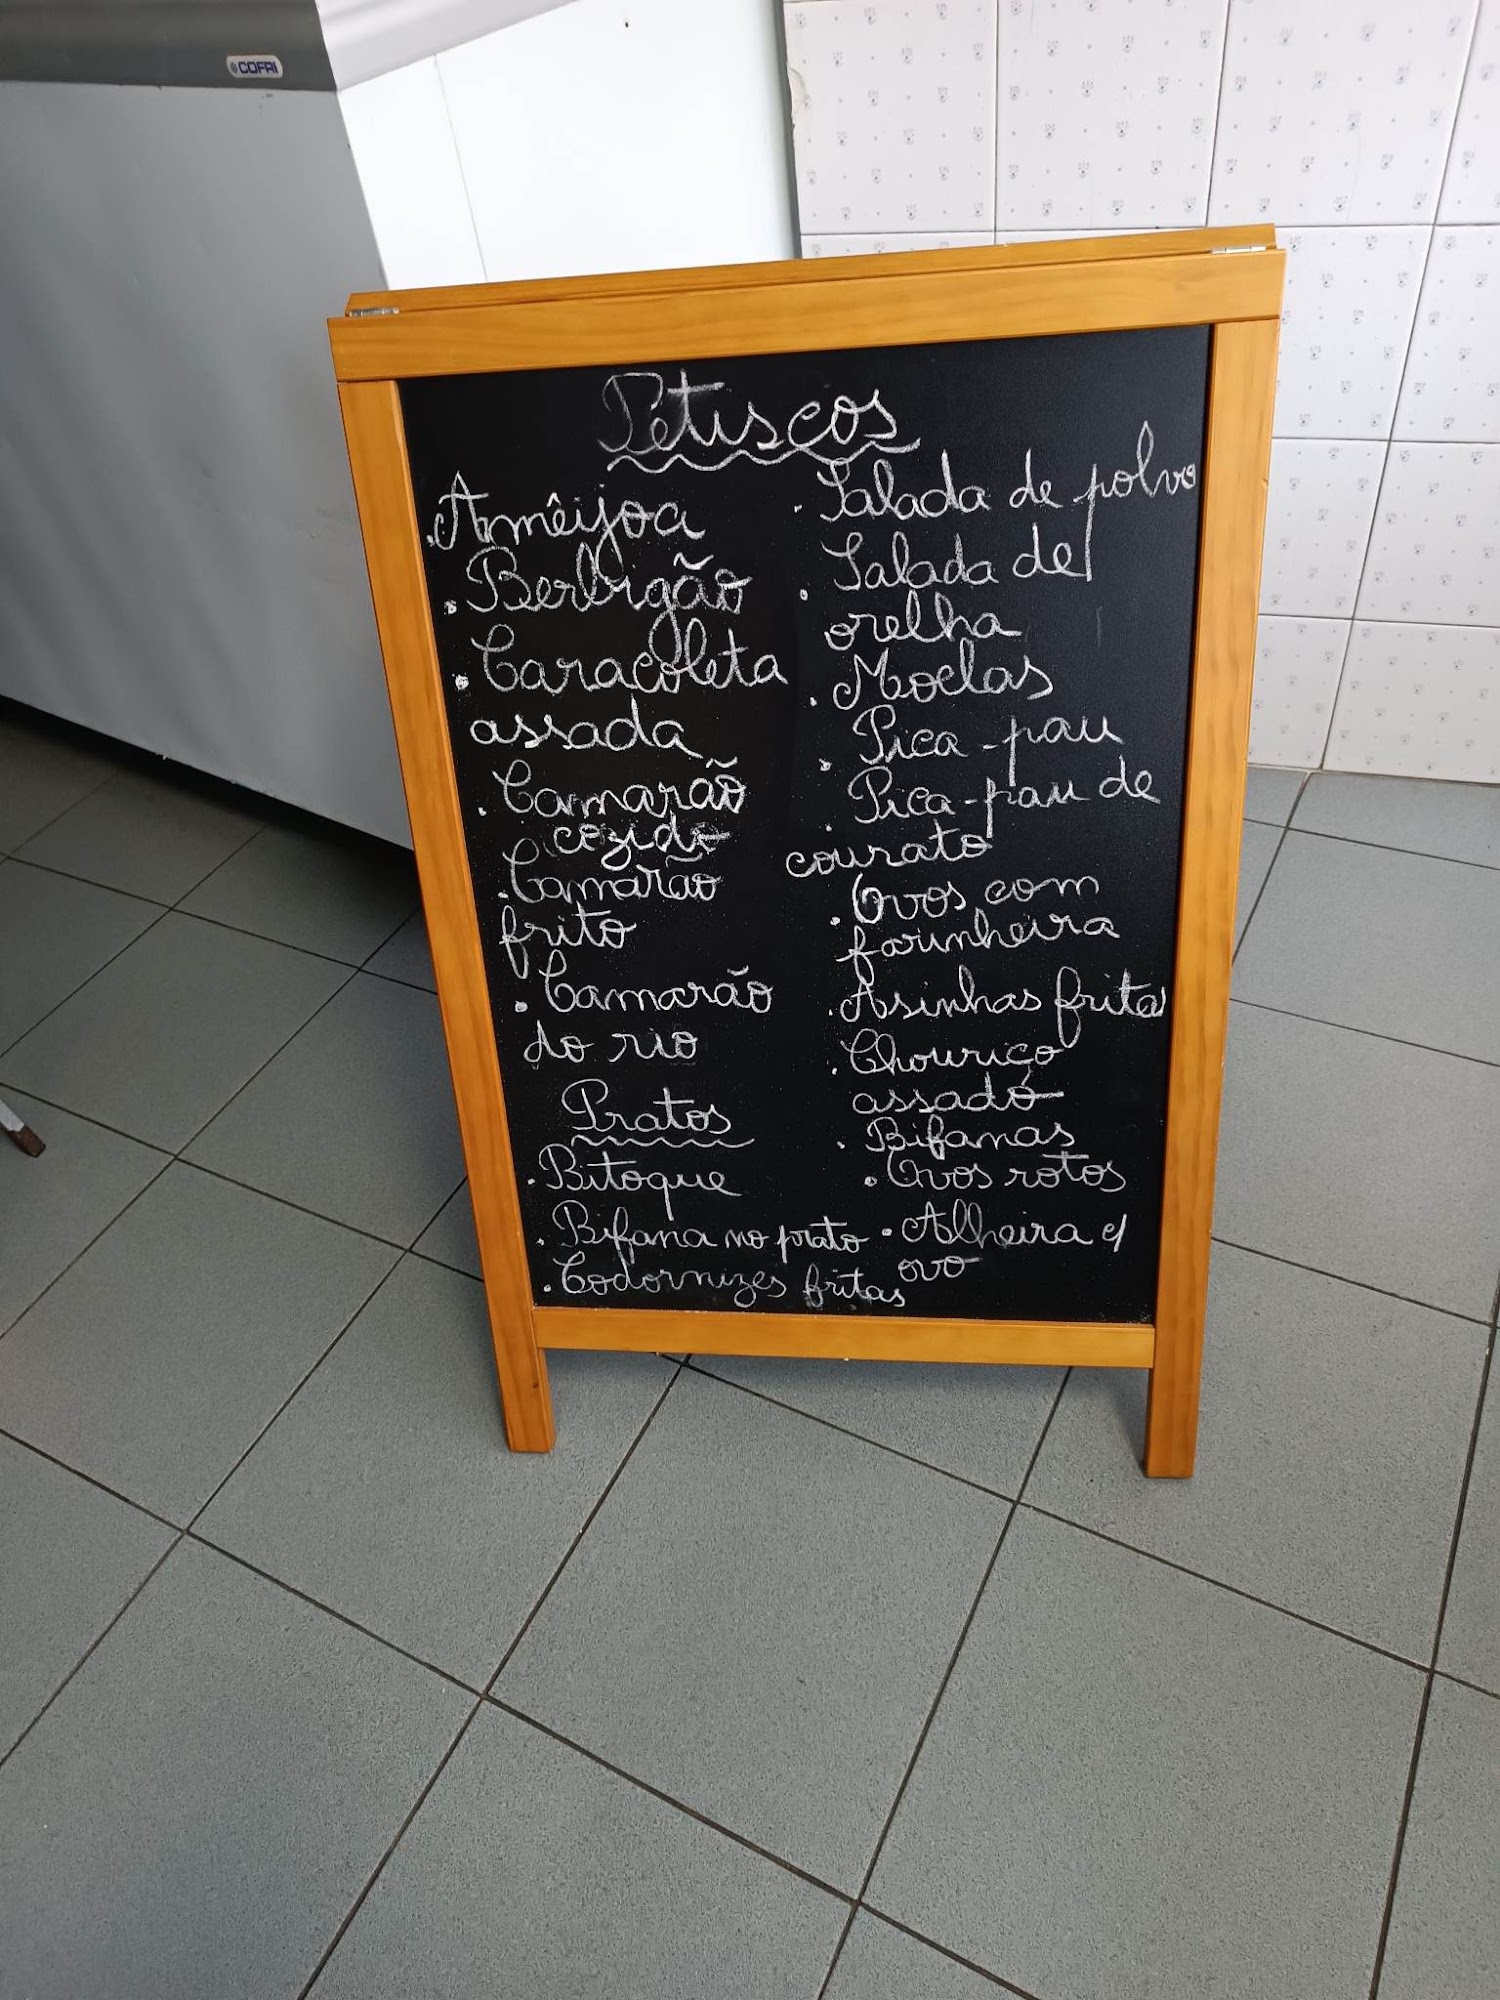 COFRI
Petiscos
.Amêijoa
.Berbigão
.Caracoleta
assada
.Camarão
cozido
.Camarão
frito
.Camarão
do rio
Pratos
.Bitoque
.Bifana no prato
.Codornizes fritas
.Salada de polvo
.Salada de
orelha
.Moelas
.Pica-pau
.Pica-pau de
courato
.Ovos com
farinheira
.Asinhas fritas
.Chouriço
assado
.Bifanas
.Ovos rotos
.Alheira c/
ovo